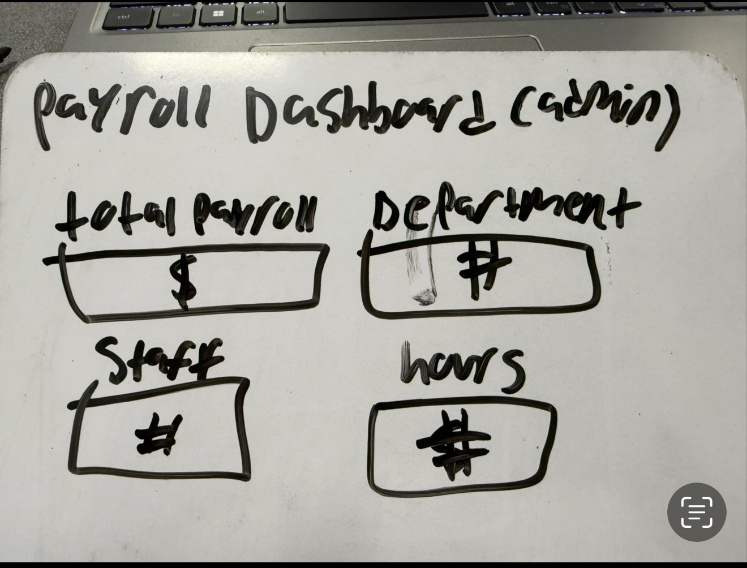 Payroll Dashboard (admin)
total payroll Department
$ #
Staff hours
# #